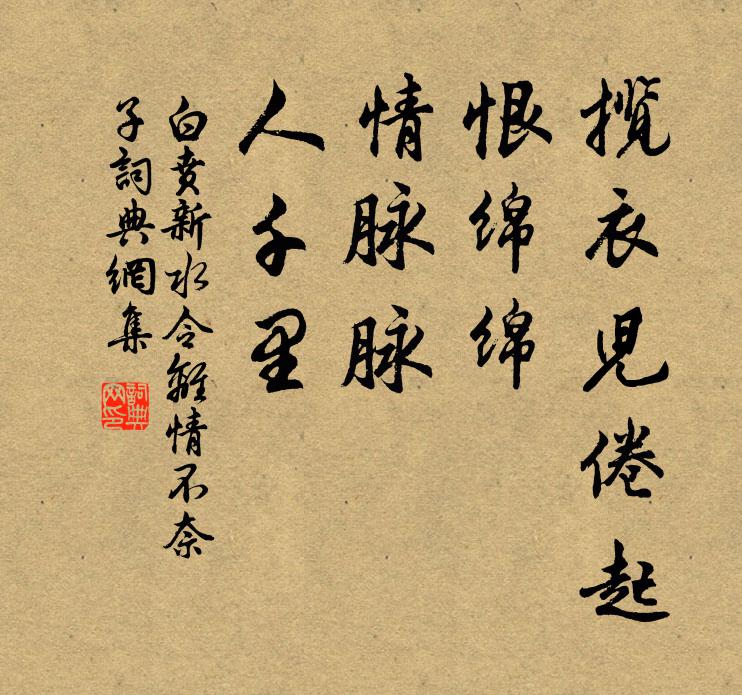 攬衣兒倦起
恨綿綿
情脉脉
人千里
白賁新水令離情不奈
子詞典網集
詞典網印